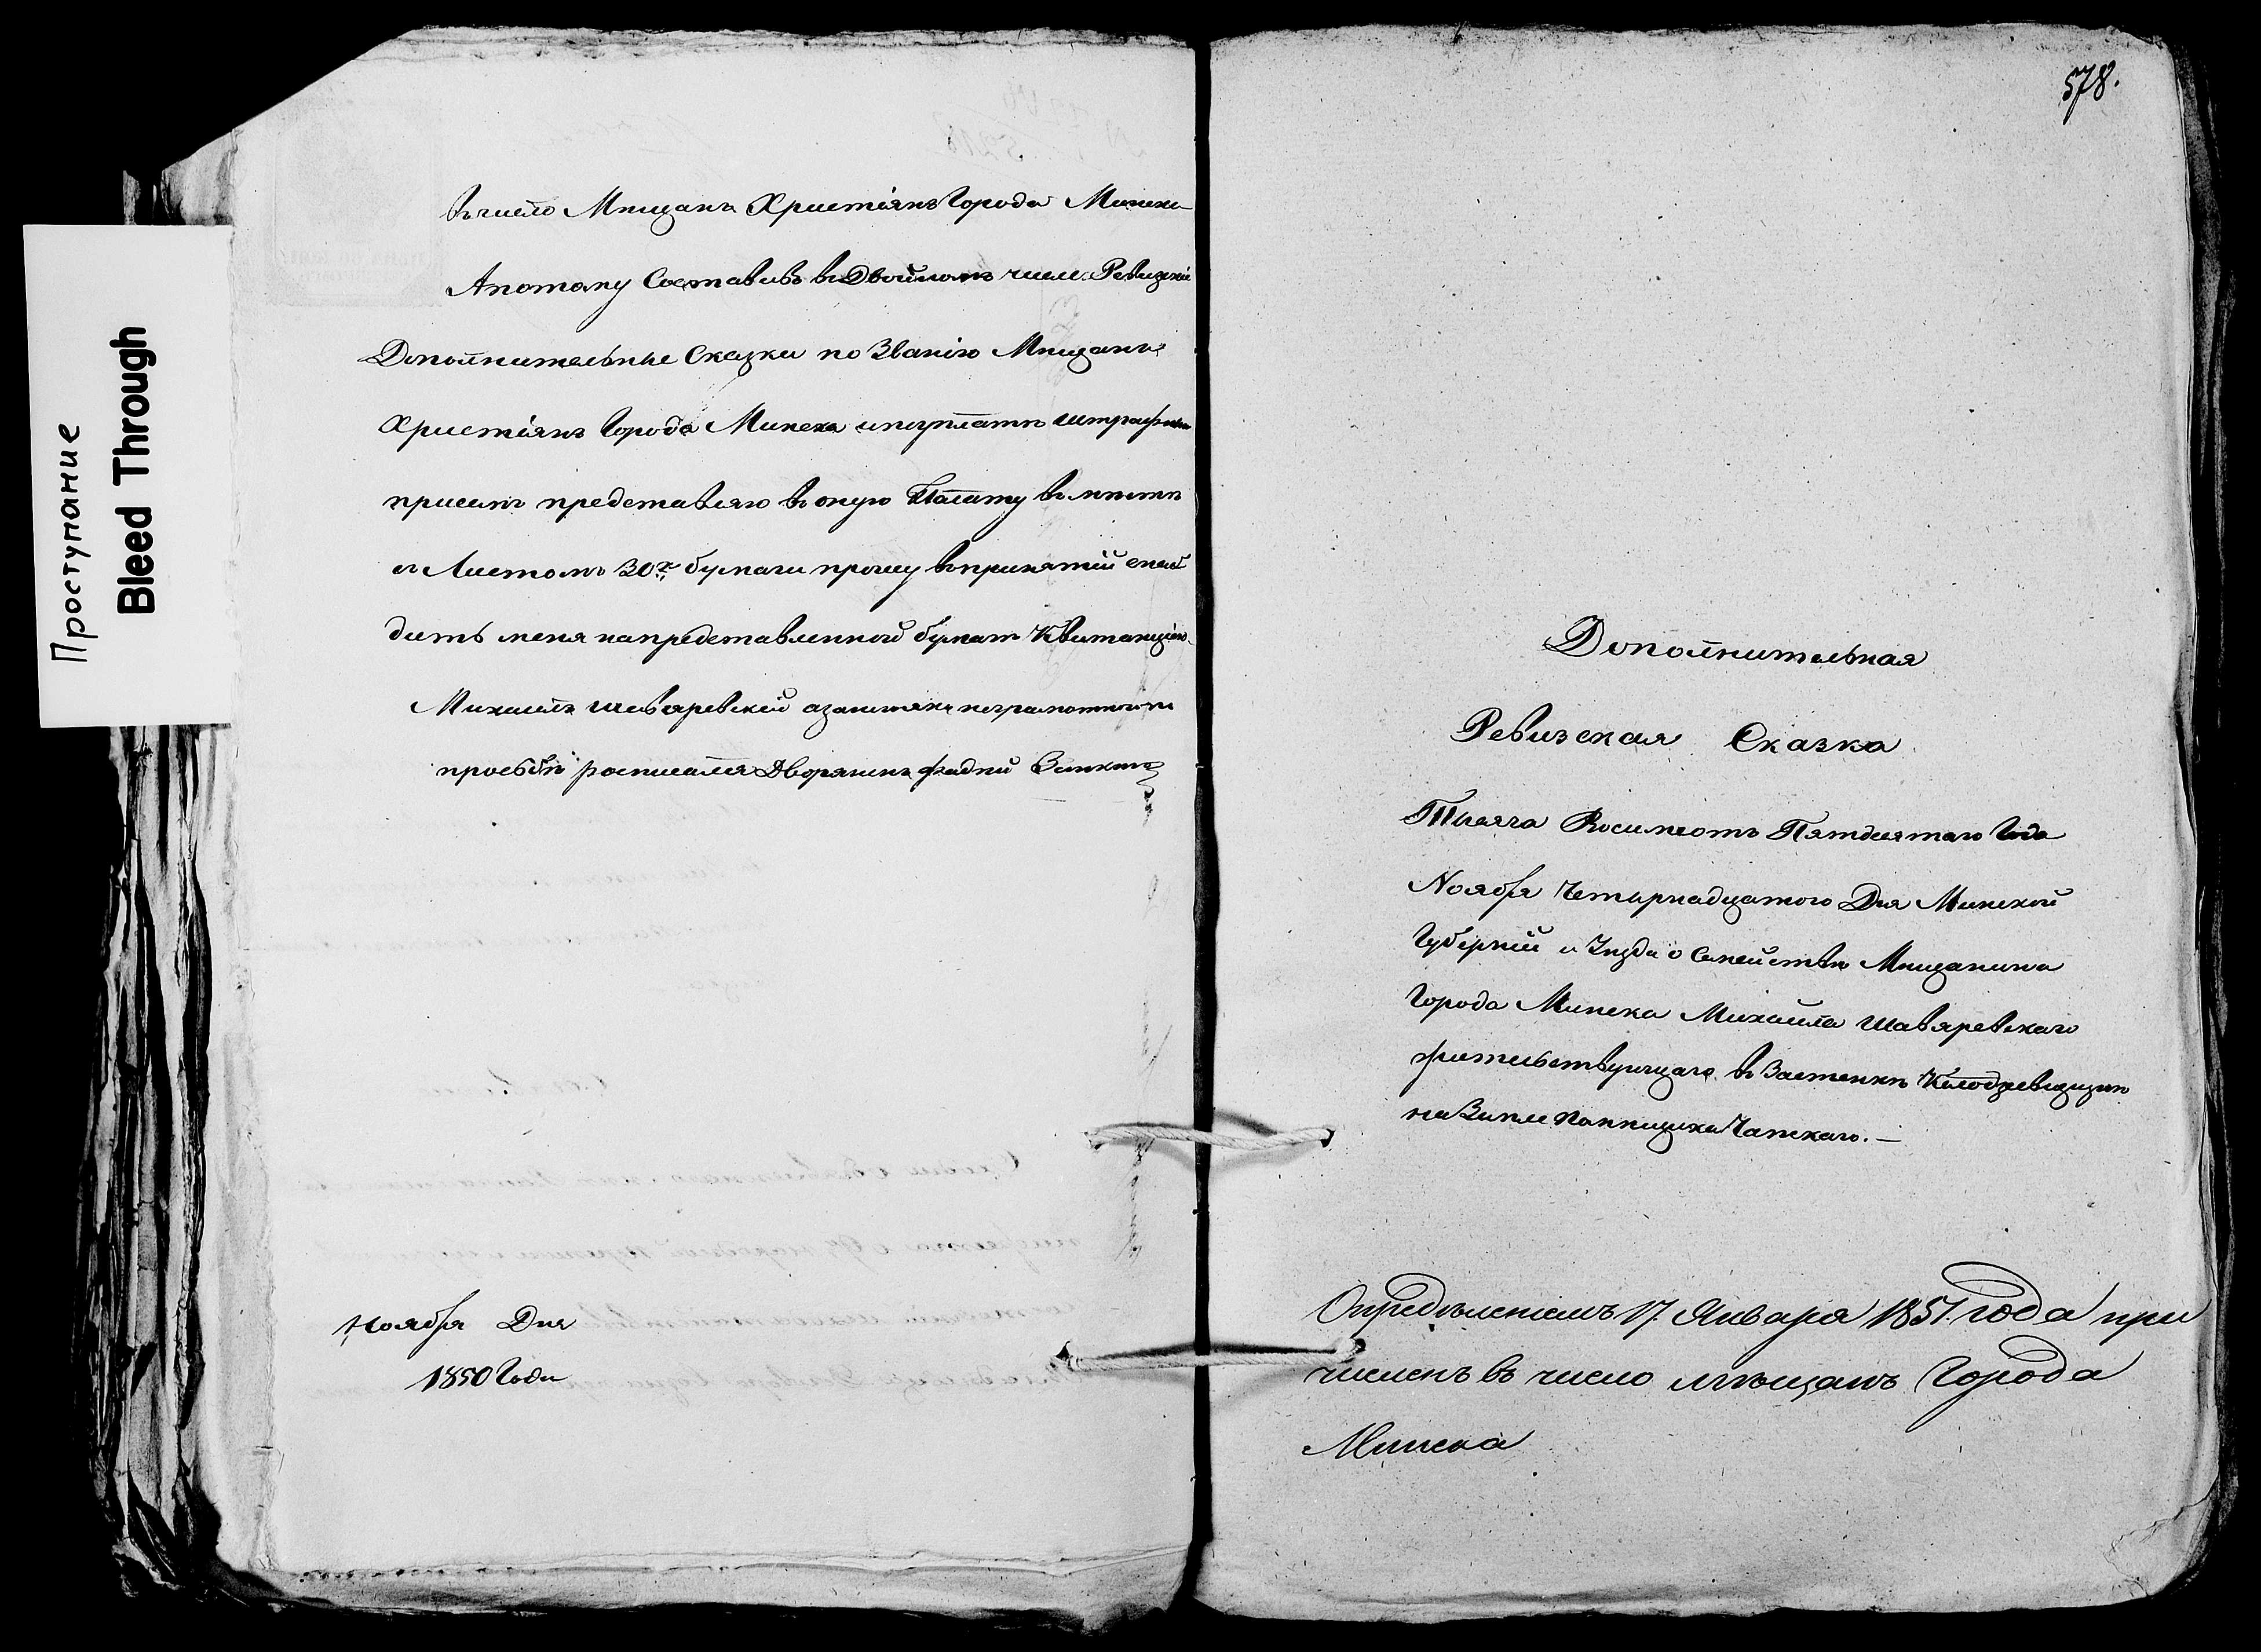 Проступание
Bleed Through
въ число Мѣщанъ Христіянъ Города Минска
Апотому Составивъ въ Двойномъ числѣ Ревизскіе
Дополнительные Сказки по Званію Мѣщанъ
Христіянъ Города Минска
присемъ представляю въ оную Палату вмѣстѣ
съ Листомъ 30 бумаги прошу впринятіи снаб
дить меня напредставленной бумаги Квитанціею
Михаилъ Шавяревскій азанимъ неграмотнымъ
просьбѣ росписался Дворянинъ Фадѣй
Ноября Дня
1850 Года
578.
Дополнительная
Ревизская Сказка
Тысяча Восимсотъ Пятдесятаго Года
Ноября Четырнадцатого Дня Минской
Губерніи и Уѣзда о Семействѣ Мѣщанина
Города Минска Михаила Шавяревскаго
жительствующаго въ Застенкѣ
на Зимле Помѣщика Чапскаго. —
Опредѣленіемъ 17. Января 1851. года при
численъ въ число мѣщанъ Города
Минска